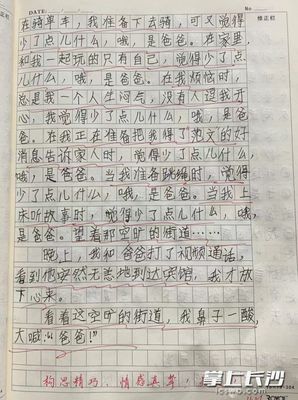 DATE:
No
修正栏
在骑单车，我准备下去骑，可又觉得
少了点儿什么，哦，是爸爸。在家里，
和我一起玩的只有自己，觉得少了点
儿什么，哦，是爸爸。在我烦恼时，
总是我一个人生闷气，没有人逗我开
心，我觉得少了点儿什么，哦，是爸
爸。在我正在准备把我得了范文的好
消息告诉家人时，觉得少了点儿什么，
哦，是爸爸。当我准备跳绳时，觉得
少了点儿什么，哦，是爸爸。当我上
床听故事时，觉得少了点儿什么，哦，
是爸爸。望着那空旷的街道……
晚上，我和爸爸打了视频通话，
看到他安然无恙地到达宾馆，我才放
下心来。
看着这空旷的街道，我鼻子一酸，
大喊“爸爸！”
构思精巧，情感真挚，
掌上长沙